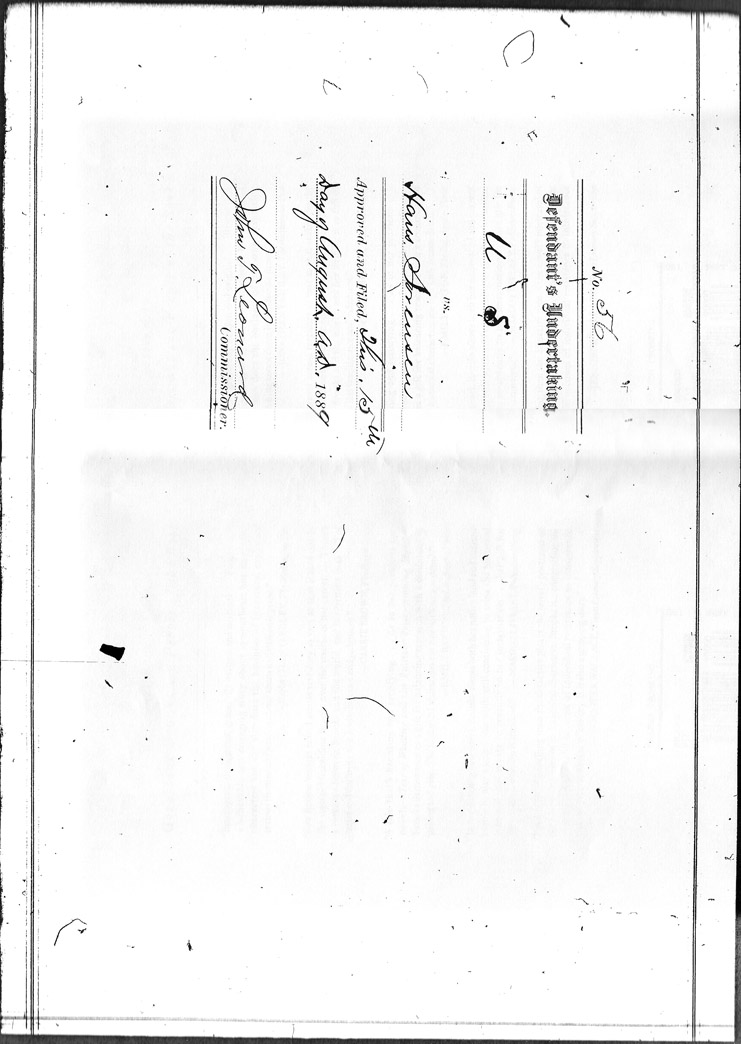 No. 56
Defendant's Undertaking.
U S
vs.
Hans Sorensen
Approved and Filed, This 15th
Day of August, A.D., 1889
John T. Leonard
Commissioner.